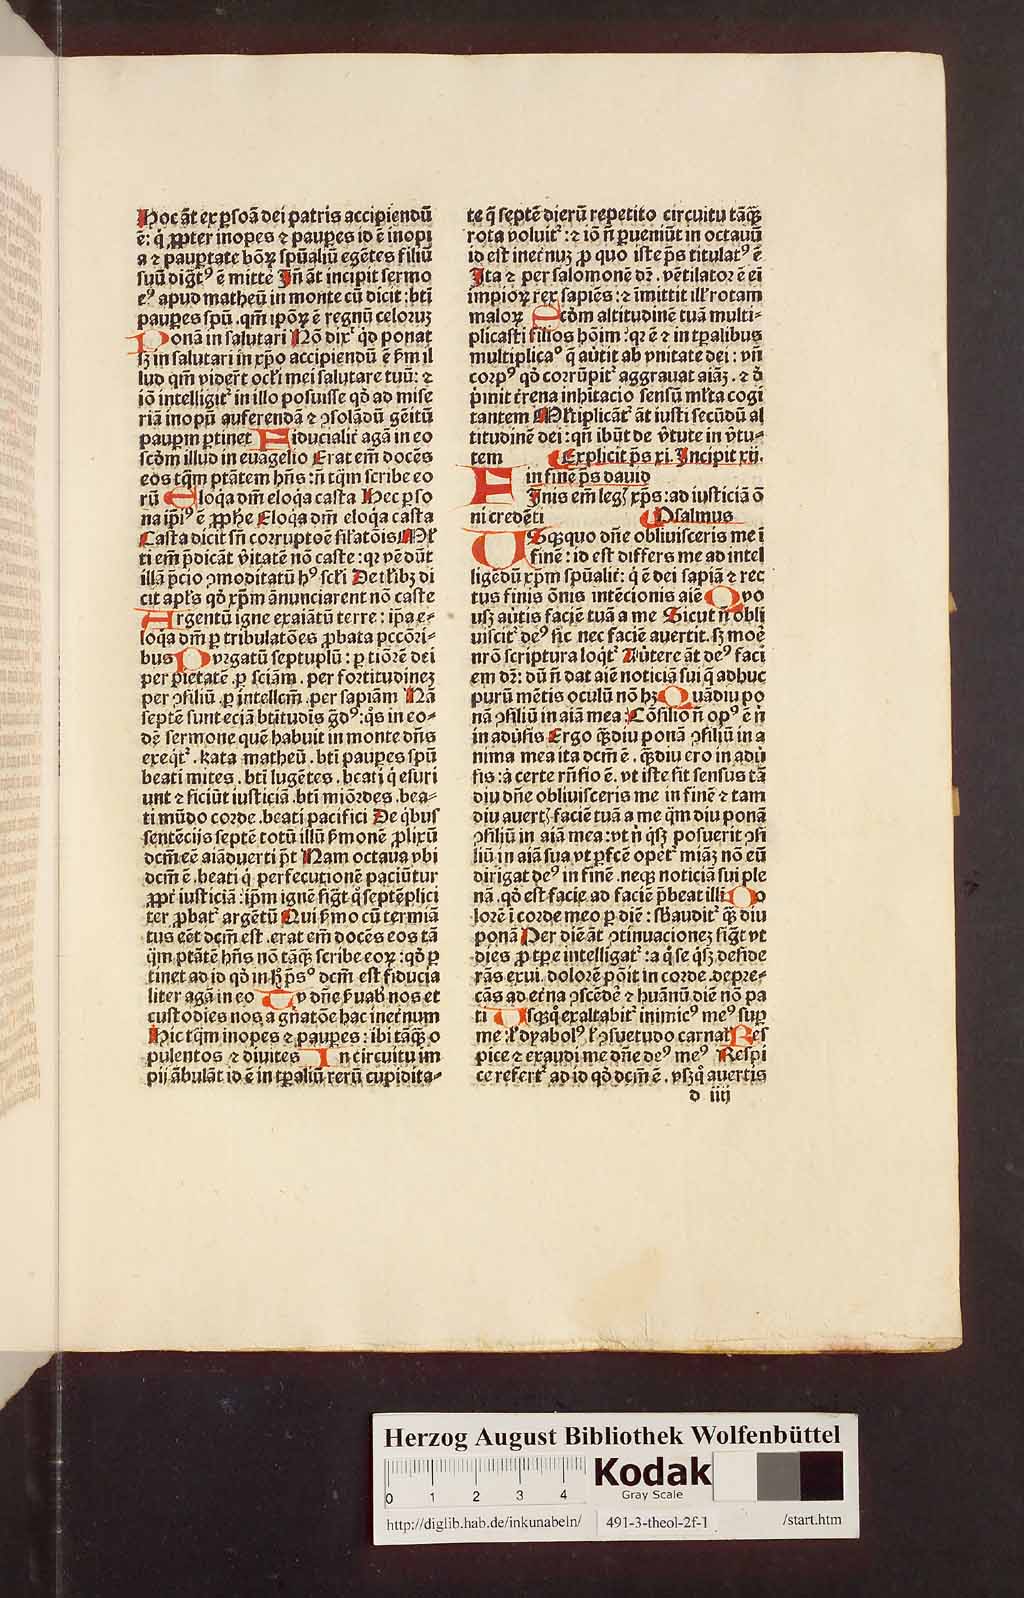 Hoc āt ex ꝑsoā dei patris accipiendū
ē: q̇ ꝓpter inopes ⁊ pauꝑes id ē inopi
a ⁊ pauꝑtate boꝝ spūaliū egētes filiū
suū digꝰ ē mitte Jn̄ āt incipit sermo
eꝰ apud matheū in monte cū dicit: bti
pauꝑes spū .qm̄ ipoꝝ ē regnū celoruꝫ
Ponā in salutari Nō dixͥ qd ponaꝫ
sꝫ in salutari in xp̄o accipiendū ē ẜm il
lud qm̄ vidert̄ ocłi mei salutare tuū: ⁊
iō intelligitͬ in illo posuisse qd ad mise
riā inopū auferendā ⁊ ꝯsolādū gēitū
pauꝑm ꝑtinet Fiducialitͬ agā in eo
scd̄m illud in euāgelio Erat em̄ docēs
eos tqm̄ ptātem hn̄s: n̄ tqm̄ scribe eo
rū Eloq̇a dm̄ eloq̇a casta Hec ꝑso
na ip̄iꝰ ē ꝓphe Eloq̇a dm̄ eloq̇a casta
Casta dicit sn̄ corruptōē silatōis Ml̄
ti em̄ p̄dicāt v̄itatē nō caste: qꝛ vēdūt
illā p̄cio ꝯmoditatū hꝰ scłi De iłibꝫ di
cit apłs qd xp̄m ānunciarent nō caste
Argentū igne exaiātū terre: ip̄a e-
loq̇a dm̄ ꝑ tribulatōes ꝓbata pccōri-
bus Purgatū septuplū: ꝑ tiōrē dei
per pietatē .ꝑ sciām .per fortitudineꝫ
per ꝯsiliū .ꝑ intellcm̄ .per sapiām Nā
septē sunt eciā btitudis gdꝰ: qs̊ in eo-
dē sermone quē habuit in monte dn̄s
exeqt̊ .kata matheū .bti pauꝑes spū
beati mites .bti lugētes .beati q̇ esuri
unt ⁊ siciūt iusticiā .bti miōrdes .bea-
ti mūdo corde .beati pacifici De qͥbus
sentēcijs septē totū illū ẜmonē ꝓlixū
dcm̄ eē aiāduerti p̄t Nam octaua vbi
dcm̄ ē .beati q̇ persecutionē paciūtur
ꝓpt̄ iusticiā: ip̄m ignē sigt̄ q̊ septēplici
ter ꝓbatͬ argētū Qui ẜmo cū termia
tus eēt dcm̄ est .erat em̄ docēs eos tā
q̇m ptātē hn̄s nō tāqꝫ scribe eoꝝ: qd ꝑ
tinet ad id qd in h̄ p̄sꝰ dcm̄ est fiducia
liter agā in eo Tu dn̄e ẜuab nos et
custodies nos a gn̄atōe hac inet̄num
Hic tqm̄ inopes ⁊ pauꝑes: ibi tāqꝫ o
pulentos ⁊ diuites In circuitu im
pij ābulāt id ē in tꝑaliū rerū cupidita-
te q̄ septē dierū repetito circuitu tāqꝫ
rota voluitͬ: ⁊ iō n̄ ꝑueniūt in octauū
id est inet̄nuꝫ ꝓ quo iste p̄s titulatꝰ ē
Jta ⁊ per salomonē dꝛ̄ .vētilatoꝛ ē ei
impioꝝ rex sapiēs: ⁊ īmittit illͬ rotam
maloꝝ Scd̄m altitudinē tuā multi-
plicasti filios hōim: qꝛ ē ⁊ in tꝑalibus
multiplicaº q̄ autit ab vnitate dei: vn̄
corpꝰ qd corrūpitͬ aggrauat aiāꝫ .⁊ d̊
pinit tr̄ena inhitacio sensū mlta cogi
tantem Ml̄tiplicātͬ āt iusti secūdū al
titudinē dei: qn̄ ibūt de v̄tute in v̄tu-
tem Explicit p̄s xi. Jncipit xij.
In finē p̄s dauid
Finis em̄ legꝫ xp̄s: ad iusticiā ō
ni credēti Psalmus
Usqꝫquo dn̄e obliuisceris me ī
finē: id est differs me ad intel
ligēdū xp̄m spūalitͬ: q̄ ē dei sapiā ⁊ rec
tus finis ōnis intēcionis aīe Quo
usꝫ au̇tis faciē tuā a me Sicut n̄ obli
uiscitͬ deꝰ sic nec faciē auertit .sꝫ moē
nr̄o scriptura loqt̊ Au̇tere āt deꝰ faci
em dꝛ̄: dū n̄ dat aīe noticiā sui q̄ adhuc
purū mētis oculū nō hꝫ Quādiu po
nā ꝯsiliū in aiā mea Cōsilio n̄ opꝰ ē n̄
in adu̇sis Ergo qꝫdiu ponā ꝯsiliū in a
nima mea ita dcm̄ ē .qꝫdiu ero in adu̇
sis: a certe rn̄sio ē .vt iste sit sensus tā
diu dn̄e obliuisceris me in finē ⁊ tam
diu auertꝫ faciē tuā a me qm̄ diu ponā
ꝯsiliū in aiā mea: vt n̄ qsꝫ posuerit ꝯsi
liū in aiā sua vt ꝑfcē operͬ miāꝫ nō eū
dirigat deꝰ in finē .neqꝫ noticiā sui ple
nā .qd est facie ad faciē p̄beat illi Do
lorē ī corde meo ꝑ diē: sbauditͬ qꝫ diu
ponā Per diē āt ꝯtinuacioneꝫ sigt̄ vt
dies ꝓ tꝑe intelligatͬ: a q̊ se qsꝫ deside
rās exui .dolorē pōit in corde .depre-
cās ad et̄na ꝯscēdē ⁊ huānū diē nō pa
ti Usqꝫq̊ exaltabitͬ inimicꝰ meꝰ suꝑ
me: ł dyabolꝰ ł ꝯsuetudo carnał Res
pice ⁊ exaudi me dn̄e deꝰ meꝰ Respi
ce refertͬ ad id qd dcm̄ ē .vsꝫq̊ auertis
d iiij
Herzog August Bibliothek Wolfenbüttel
0 1 2 3 4
Kodak
Gray Scale
http://diglib.hab.de/inkunabeln/ 491-3-theol-2f-1 /start.htm